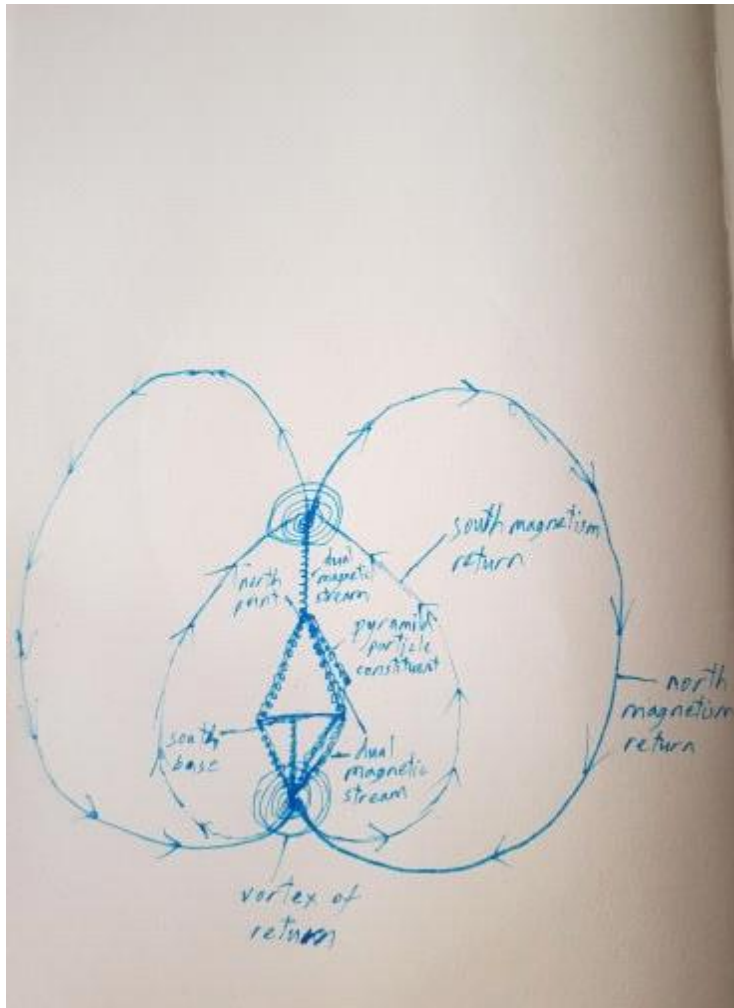 south magnetism
return
dual
magnetic
stream
north
point
pyramid
particle
constituent
north
magnetism
return
south
base
dual
magnetic
stream
vortex of
return